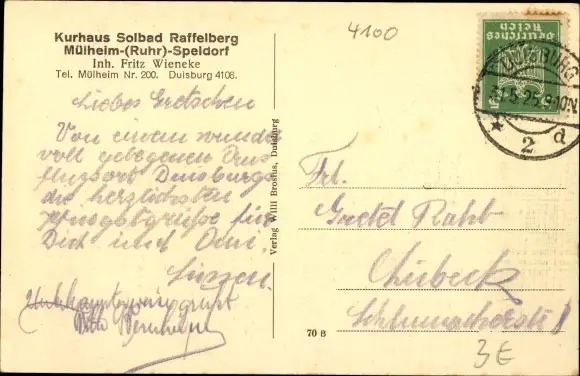 Kurhaus Solbad Raffelberg
Mülheim-(Ruhr)-Speldorf
Inh. Fritz Wieneke
Tel. Mülheim Nr. 200. Duisburg 4106.
4100
Deutsches
Reich
DUISBURG
31.5.25. 9-10N
2 d
Liebes Gretchen
Von einem wunder
voll gelegenen Aus
flugsort Duisburgs
die herzlichsten
Pfingstgrüße für
Dich und
Verlag Willi Brosius, Duisburg
Frl.
Gretel
Lübeck
70 B
3E